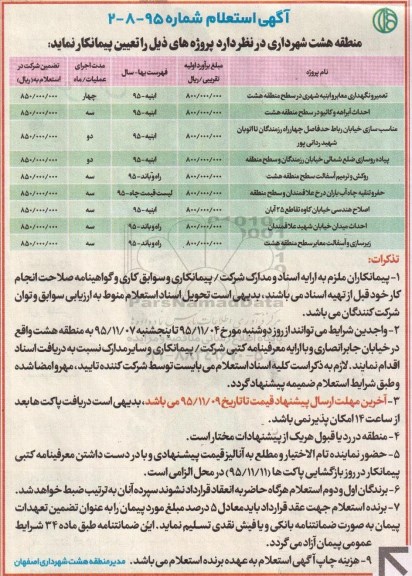 آگهی استعلام شماره ۹۵-۸-۲
منطقه هشت شهرداری در نظر دارد پروژه های ذیل را تعیین پیمانکار نماید:
نام پروژه
مبلغ برآورد اولیه تقریبی / ریال
فهرست بها - سال
مدت اجرای عملیات / ماه
تضمین شرکت در استعلام به (ریال)
تعمیر و نگهداری معابر و ابنیه شهری در سطح منطقه هشت ۸۰۰/۰۰۰/۰۰۰ ابنیه - ۹۵ چهار ۸۵۰/۰۰۰/۰۰۰
احداث آبراهه و کانیو در سطح منطقه هشت ۸۰۰/۰۰۰/۰۰۰ ابنیه - ۹۵ سه ۸۵۰/۰۰۰/۰۰۰
مناسب سازی خیابان رباط حدفاصل چهارراه رزمندگان تا اتوبان
شهید ردانی پور ۸۰۰/۰۰۰/۰۰۰ ابنیه - ۹۵ دو ۸۵۰/۰۰۰/۰۰۰
پیاده روسازی ضلع شمالی خیابان رزمندگان و سطح منطقه ۸۰۰/۰۰۰/۰۰۰ ابنیه - ۹۵ دو ۸۵۰/۰۰۰/۰۰۰
روکش و ترمیم آسفالت سطح منطقه هشت ۸۰۰/۰۰۰/۰۰۰ راه و باند - ۹۵ سه ۸۵۰/۰۰۰/۰۰۰
حفر و تنقیه چاه آب باران در خ علاقمندان و سطح منطقه ۸۰۰/۰۰۰/۰۰۰ لیست قیمت چاه - ۹۵ سه ۸۵۰/۰۰۰/۰۰۰
اصلاح هندسی خیابان کاوه تقاطع ۲۵ آبان ۸۰۰/۰۰۰/۰۰۰ ابنیه - ۹۵ سه ۸۵۰/۰۰۰/۰۰۰
احداث میدان خیابان شهید علاقمندان ۸۰۰/۰۰۰/۰۰۰ راه و باند - ۹۵ سه ۸۵۰/۰۰۰/۰۰۰
زیرسازی و آسفالت معابر سطح منطقه هشت ۸۰۰/۰۰۰/۰۰۰ راه و باند - ۹۵ سه ۸۵۰/۰۰۰/۰۰۰
تذکرات:
۱- پیمانکاران ملزم به ارایه اسناد و مدارک شرکت / پیمانکاری و سوابق کاری و گواهینامه صلاحیت انجام
کار خود قبل از تهیه اسناد می باشند، بدیهی است تحویل اسناد استعلام منوط به ارزیابی سوابق و توان
شرکت کنندگان می باشد.
۲- واجدین شرایط می توانند از روز دوشنبه مورخ ۹۵/۱۱/۰۴ تا پنجشنبه ۹۵/۱۱/۰۷ به منطقه هشت واقع
در خیابان جابر انصاری و با ارایه معرفینامه کتبی شرکت / پیمانکاری و سایر مدارک نسبت به دریافت اسناد
اقدام نمایند. لازم به ذکر است کلیه اسناد استعلام می بایست توسط شرکت کننده تایید، مهر و امضا شده
و طبق شرایط استعلام ضمیمه پیشنهاد گردد.
۳- آخرین مهلت ارسال پیشنهاد قیمت تا تاریخ ۹۵/۱۱/۰۹ می باشد، بدیهی است دریافت پاکت ها بعد
از ساعت ۱۴ امکان پذیر نمی باشد.
۴- منطقه در رد یا قبول هر یک از پیشنهادات مختار است.
۵- حضور نماینده تام الاختیار و مطلع به آنالیز قیمت پیشنهادی و با در دست داشتن معرفینامه کتبی
پیمانکار در روز بازگشایی پاکت ها (۹۵/۱۱/۱۱) در محل الزامی است.
۶- برندگان اول و دوم استعلام هرگاه حاضر به انعقاد قرارداد نشوند سپرده آنان به ترتیب ضبط خواهد شد.
۷- برنده استعلام جهت عقد قرارداد باید معادل ۵ درصد مبلغ مورد پیمان را به عنوان تضمین تعهدات
پیمان به صورت ضمانتنامه بانکی و یا فیش نقدی تسلیم نماید. این ضمانتنامه طبق ماده ۳۴ شرایط
عمومی پیمان آزاد می گردد.
۹- هزینه چاپ آگهی استعلام به عهده برنده استعلام می باشد.
مدیر منطقه هشت شهرداری اصفهان